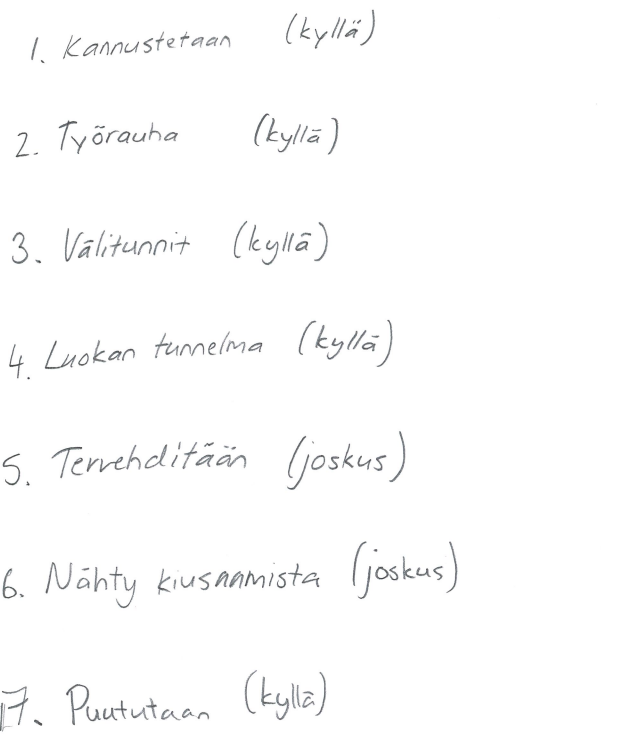 1. Kannustetaan (kyllä)
2. Työrauha (kyllä)
3. Välitunnit (kyllä)
4. Luokan tunnelma (kyllä)
5. Tervehditään (joskus)
6. Nähty kiusaamista (joskus)
7. Puututaan (kyllä)